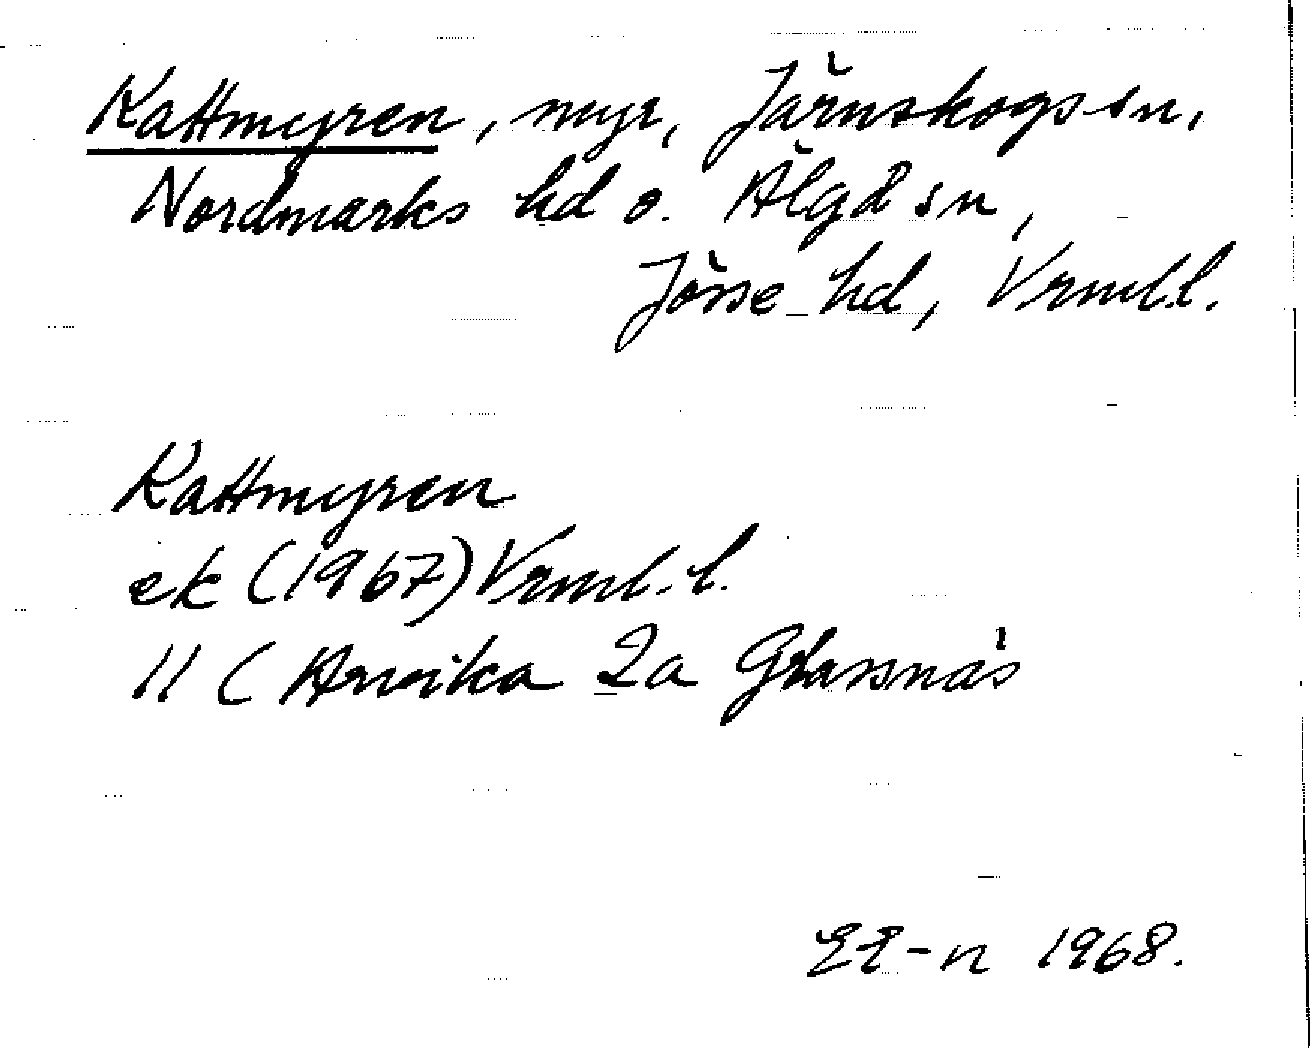 Kattmyren, myr, Järnskogs sn,
Nordmarks hd o. Älgå sn,
Jösse hd, Vrml.l.
Kattmyren
ek (1967) Vrml.l.
11 C Arvika 2a Glassnäs
EE-n 1968.